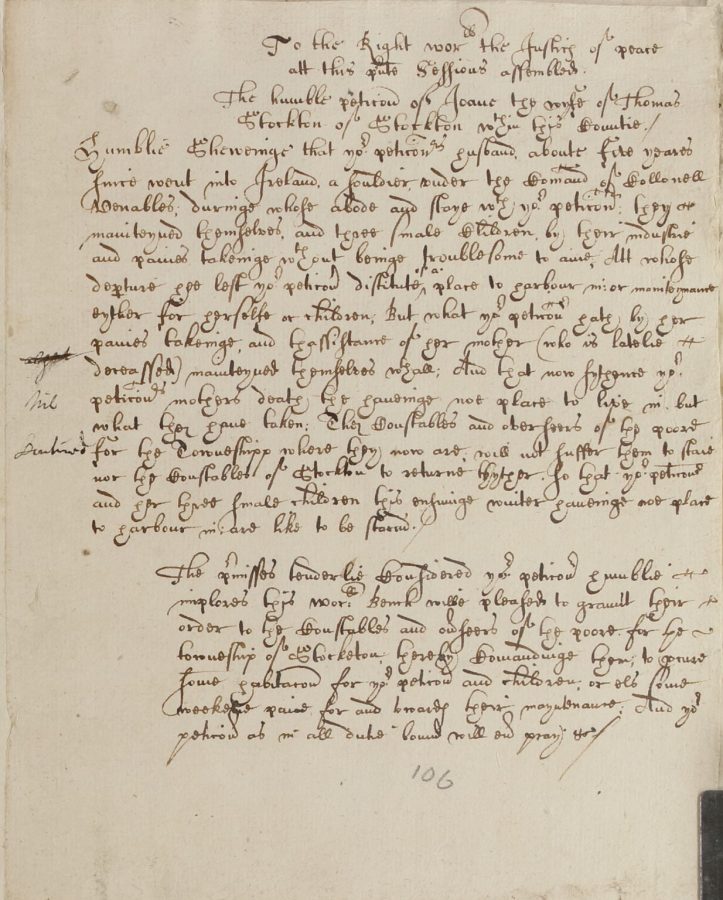 To the Right wor:ll the Justices of peace
att this p'nte Sessions assembled.
The humble peticon of Joane the wyfe of Thomas
Stockton of Stockton wthin this Countie./
Humblie Sheweinge that yor peticon:rs husband, aboute five yeares
since went into Ireland, a souldier, under the Comaund of Collonell
Venables; duringe whose abode and staye wth yor peticonr: they
mainteyned themselves, and three smale Children, by their industrie
and paines takeinge wthout beinge troublesome to anie, Att whose
depture hee left yor peticonr distitute of a place to harbour in: or mainteynance
eyther for herselfe or children; But what yor peticonr hath by her
paines takeinge, and thassistance of her mother (who is latelie
deceassed) mainteyned themselves wthall; And that now sythence yor
peticon:rs mothers death, she haveinge noe place to live in but
what they have taken; The Constables and overseers of the poore
for the Towneshipp where they now are, will not suffer them to staie
nor the Constables of Stockton to returne thyther. So that yor peticonr
and her three smale children this ensuinge winter haveinge noe place
to harbour in: are like to be starvd./
Nil
The p'misses tenderlie Considered yor peticonr humblie
implores this wor:ll Bench wilbe pleased to graunt their
order to the Constables and ov'seers of the poore for the
towneship of Stocketon thereby Comandinge them, to p'cure
some habitacon for yor peticonr and children, or els some
weekelie paie for and towards their mayntenance; And yor
peticonr as in all dutie bound will ev'r pray &c/
106